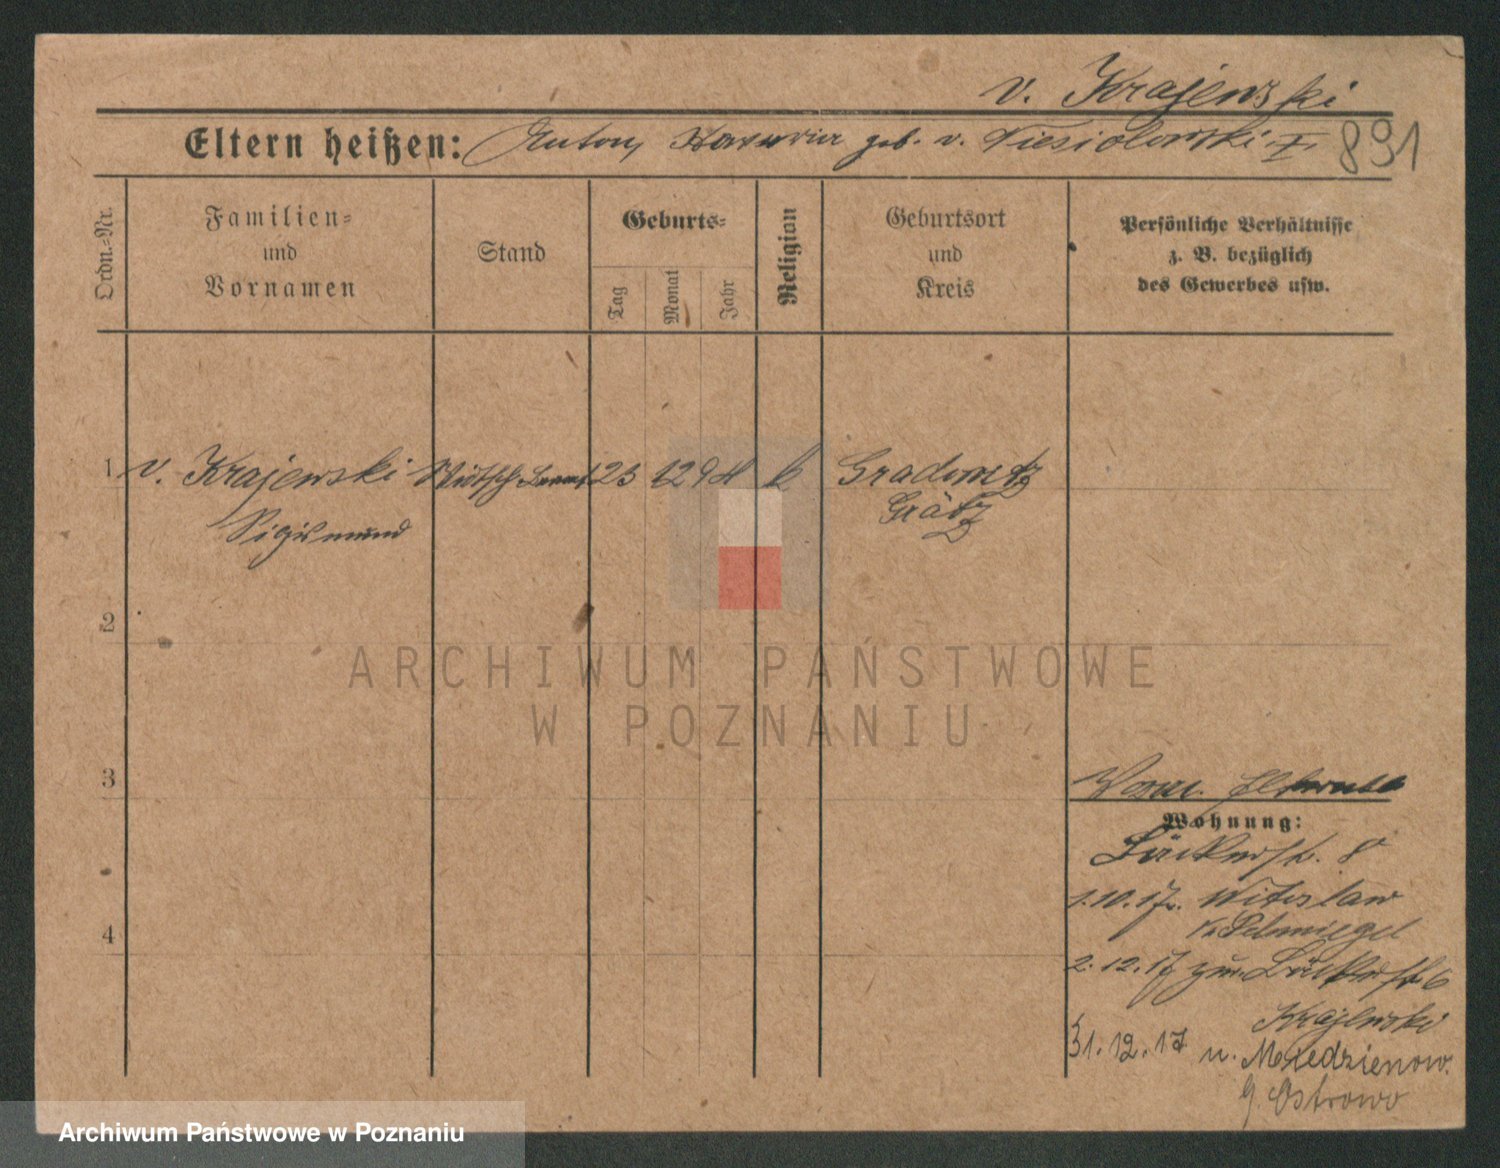 v. Krajewski
Eltern heißen: Anton, Xaveria geb. v. Niesiolowski I. 891
Ordn.=Nr.
Familien=
und
Vornamen
Stand
Geburts=
Tag
Monat
Jahr
Religion
Geburtsort
und
Kreis
Persönliche Verhältnisse
z. B. bezüglich
des Gewerbes usw.
1 v. Krajewski 23 12 94 k Gradowitz
Sigismund Grätz
2
ARCHIWUM PAŃSTWOWE
W POZNANIU
3
Wohnung:
Bäckerstr. 8
1.10.17. Witoslaw
Kr. Schmiegel
2.12.17 zur. Bäckerstr. 6
4
Krajewski
31.12.17 n. Miedzianow.
Ostrowo
Archiwum Państwowe w Poznaniu